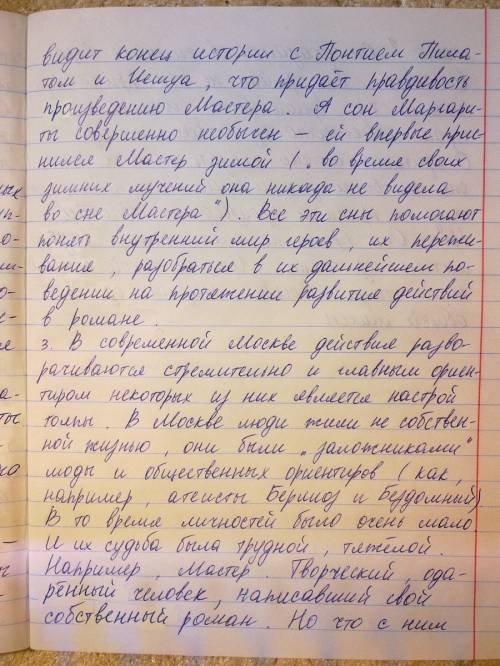 видит конец истории с Понтием Пила-
том и Иешуа, что придаёт правдивость
произведению Мастера. А сон Маргари-
ты совершенно необычен – ей впервые прис-
нился Мастер зимой („во время своих
зимних мучений она никогда не видела
во сне Мастера"). Все эти сны помогают
понять внутренний мир героев, их пережи-
вания, разобраться в их дальнейшем по-
ведении на протяжении развития действий
в романе.
3. В современной Москве действия разво-
рачиваются стремительно и главным ориен-
тиром некоторых из них является настрой
толпы. В Москве люди жили не собствен-
ной жизнью, они были „заложниками"
моды и общественных ориентиров (как,
например, атеисты Берлиоз и Бездомный)
В то время личностей было очень мало.
И их судьба была трудной, тяжёлой.
Например, Мастер. Творческий, ода-
рённый человек, написавший свой
собственный роман. Но что с ним